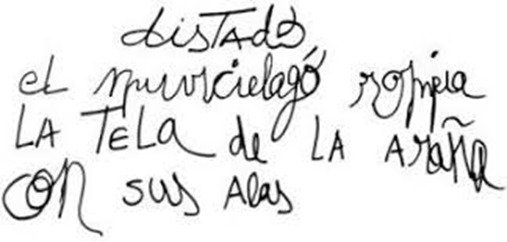 distado
el murcielagó rompia
LA TELa de LA Araña
con sus Alas